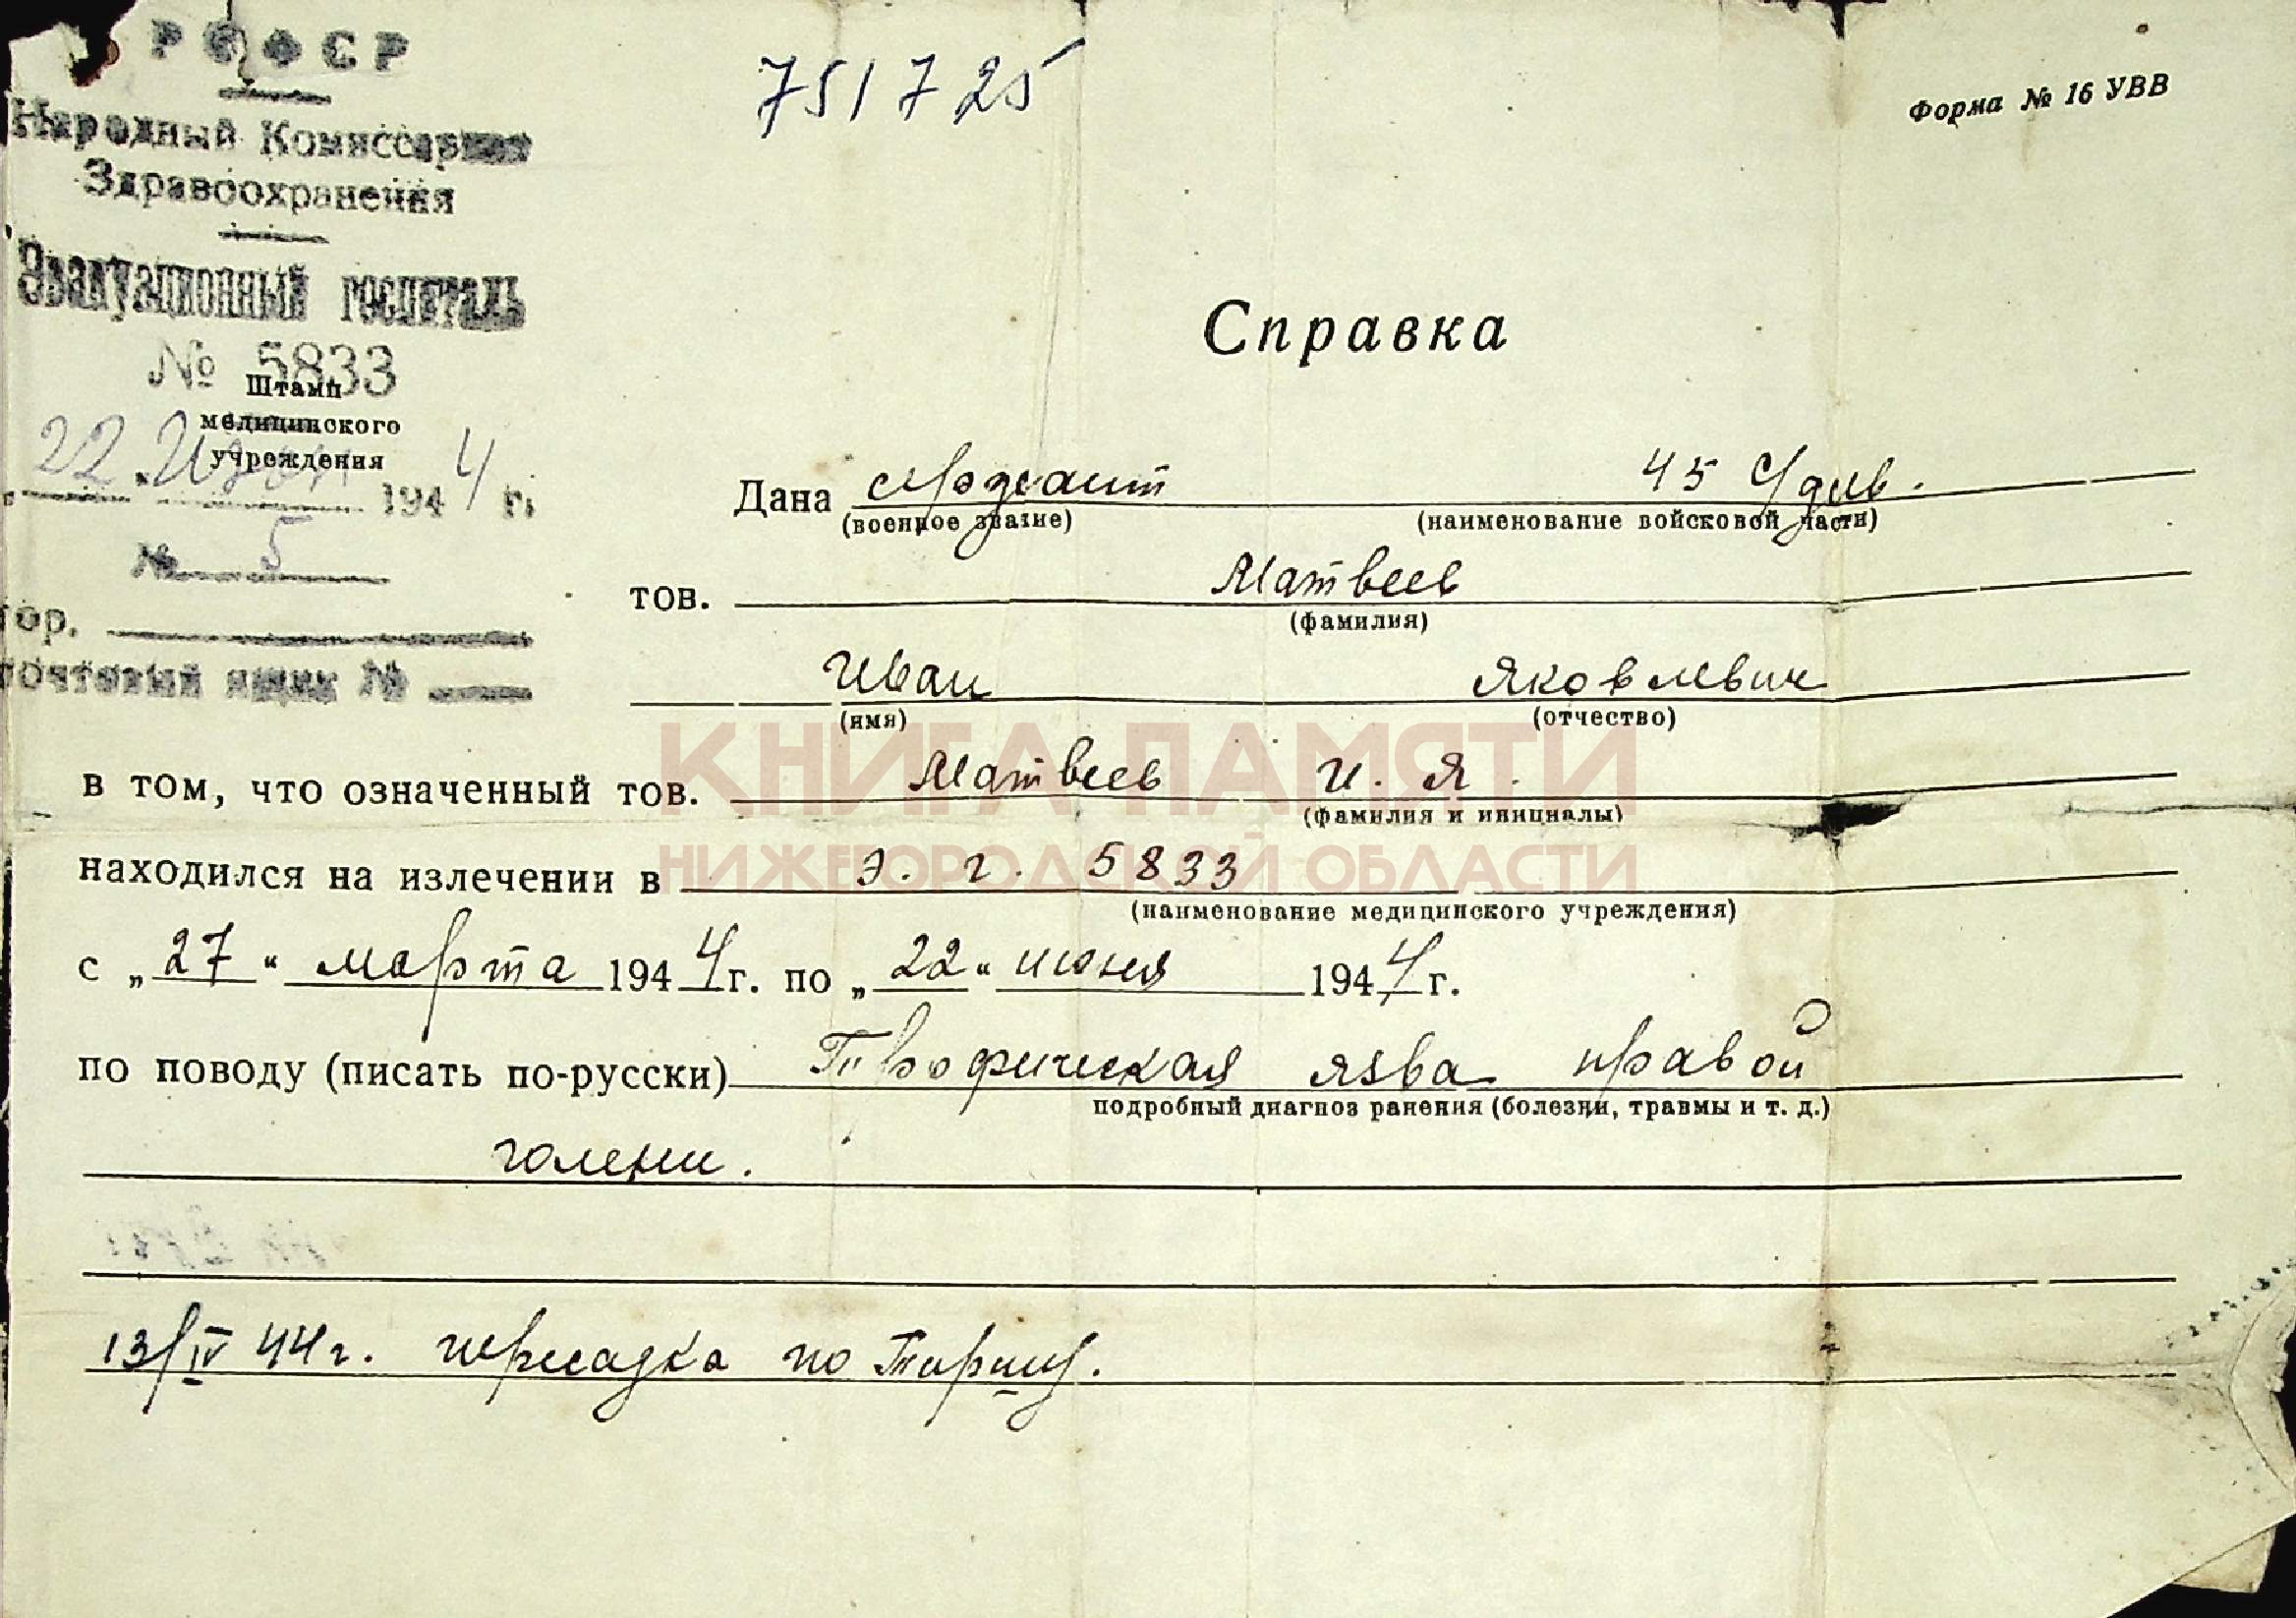 РСФСР
751725
Форма № 16 УВВ
Народный Комиссариат
Здравоохранения
Эвакуационный госпиталь
№ 5833
Штамп
медицинского
учреждения
22 Июня 1944 г.
№ 5
гор.
почтовый ящик №
Справка
Дана сержант 45 с/див.
(военное звание) (наименование войсковой части)
тов. Матвеев
(фамилия)
Иван Яковлевич
(имя) (отчество)
в том, что означенный тов. Матвеев И. Я.
(фамилия и инициалы)
находился на излечении в э. г. 5833
(наименование медицинского учреждения)
с „27“ марта 1944 г. по „22“ июня 1944 г.
по поводу (писать по-русски) Трофическая язва правой
подробный диагноз ранения (болезни, травмы и т. д.)
голени.
13/IV 44 г. пересадка по Тиршу.
КНИГА ПАМЯТИ
НИЖЕГОРОДСКОЙ ОБЛАСТИ